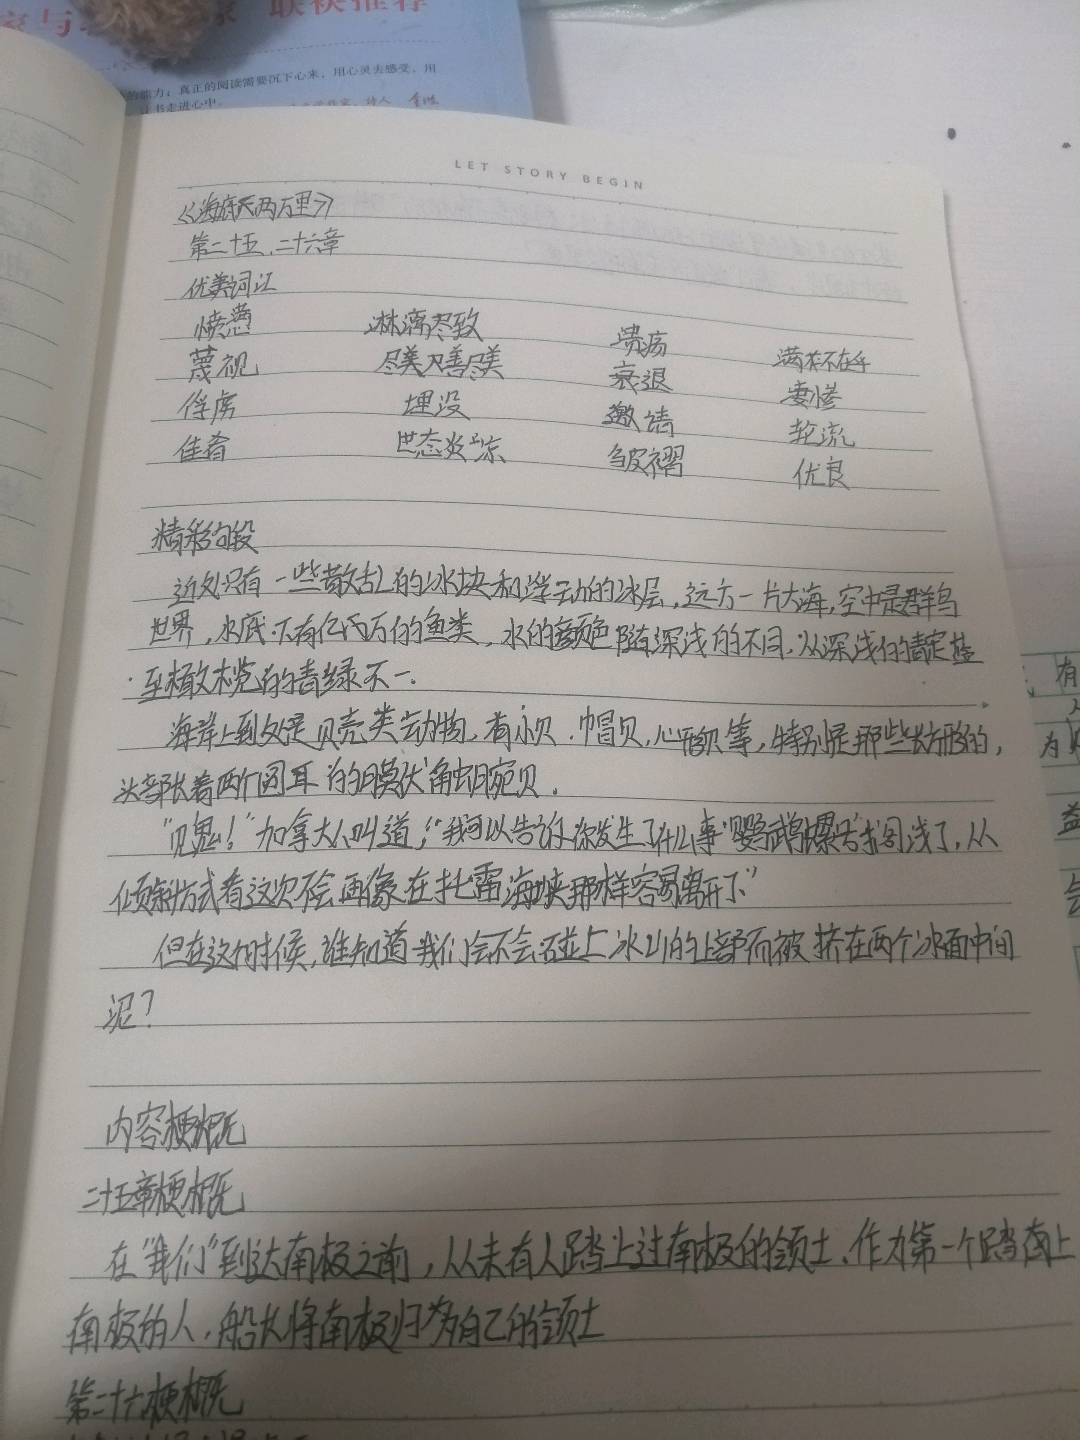 联袂推荐
的能力；真正的阅读需要沉下心来，用心灵去感受，用
书走进心中。
LET STORY BEGIN
《海底两万里》
第二十五、二十六章
优美词汇
愤懑 淋漓尽致 溃疡 满不在乎
蔑视 尽善尽美 衰退 凄惨
俘虏 埋没 邀请 轮流
佳肴 世态炎凉 皱褶 优良
精彩句段
近处只有一些散乱的冰块和浮动的冰层，远方一片大海，空中是群鸟
世界，水底下有亿兆万的鱼类，水的颜色随深浅的不同，从深浅的靛蓝
至橄榄的青绿不一。
海岸上到处是贝壳类动物，有小贝、帽贝、心形贝等，特别是那些长方形的，
头部长着两个圆耳的膜状触角蜿贝。
“见鬼！”加拿大人叫道，“我可以告诉你发生了什么事“鹦鹉螺号”搁浅了，从
倾斜方式看这次不会再像在托雷海峡那样容易离开了”
但在这个时候，谁知道我们会不会碰上冰山的上部而被挤在两个冰面中间
泥？
内容梗概
二十五章梗概
在“我们”到达南极之前，从未有人踏上过南极的领土、作为第一个踏上
南极的人，船长将南极归为自己的领土
第二十六梗概
有
为
益